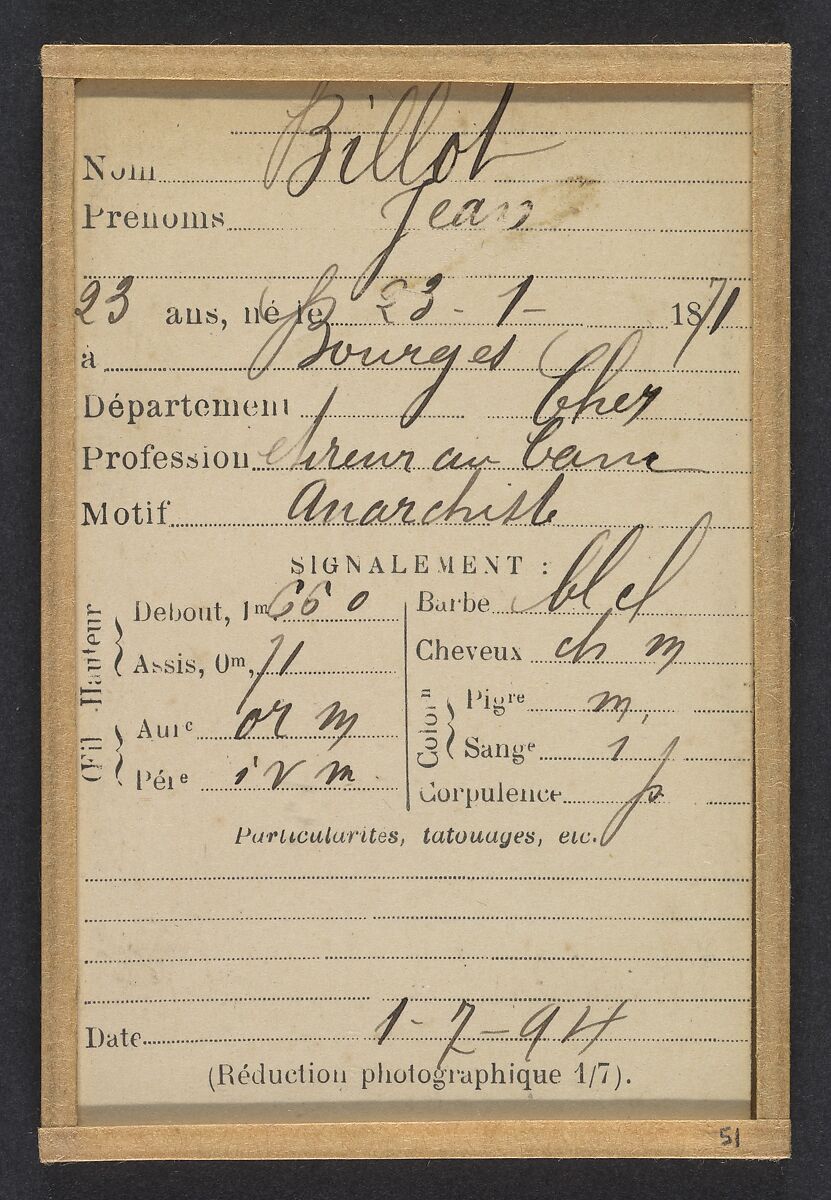 Nom Billot
Prénoms Jean
23 ans, né le 23-1-1871
à Bourges
Département Cher
Profession étireur au banc
Motif Anarchiste
SIGNALEMENT :
Hauteur
Debout, 1m 660
Assis, 0m, 71
(Fil
Aure or m
Pére i v m
Barbe bl cl
Cheveux ch m
Colorn
Pigre m,
Sange 1
Corpulence p
Particularités, tatouages, etc.
Date 1-7-94
(Réduction photographique 1/7).
51